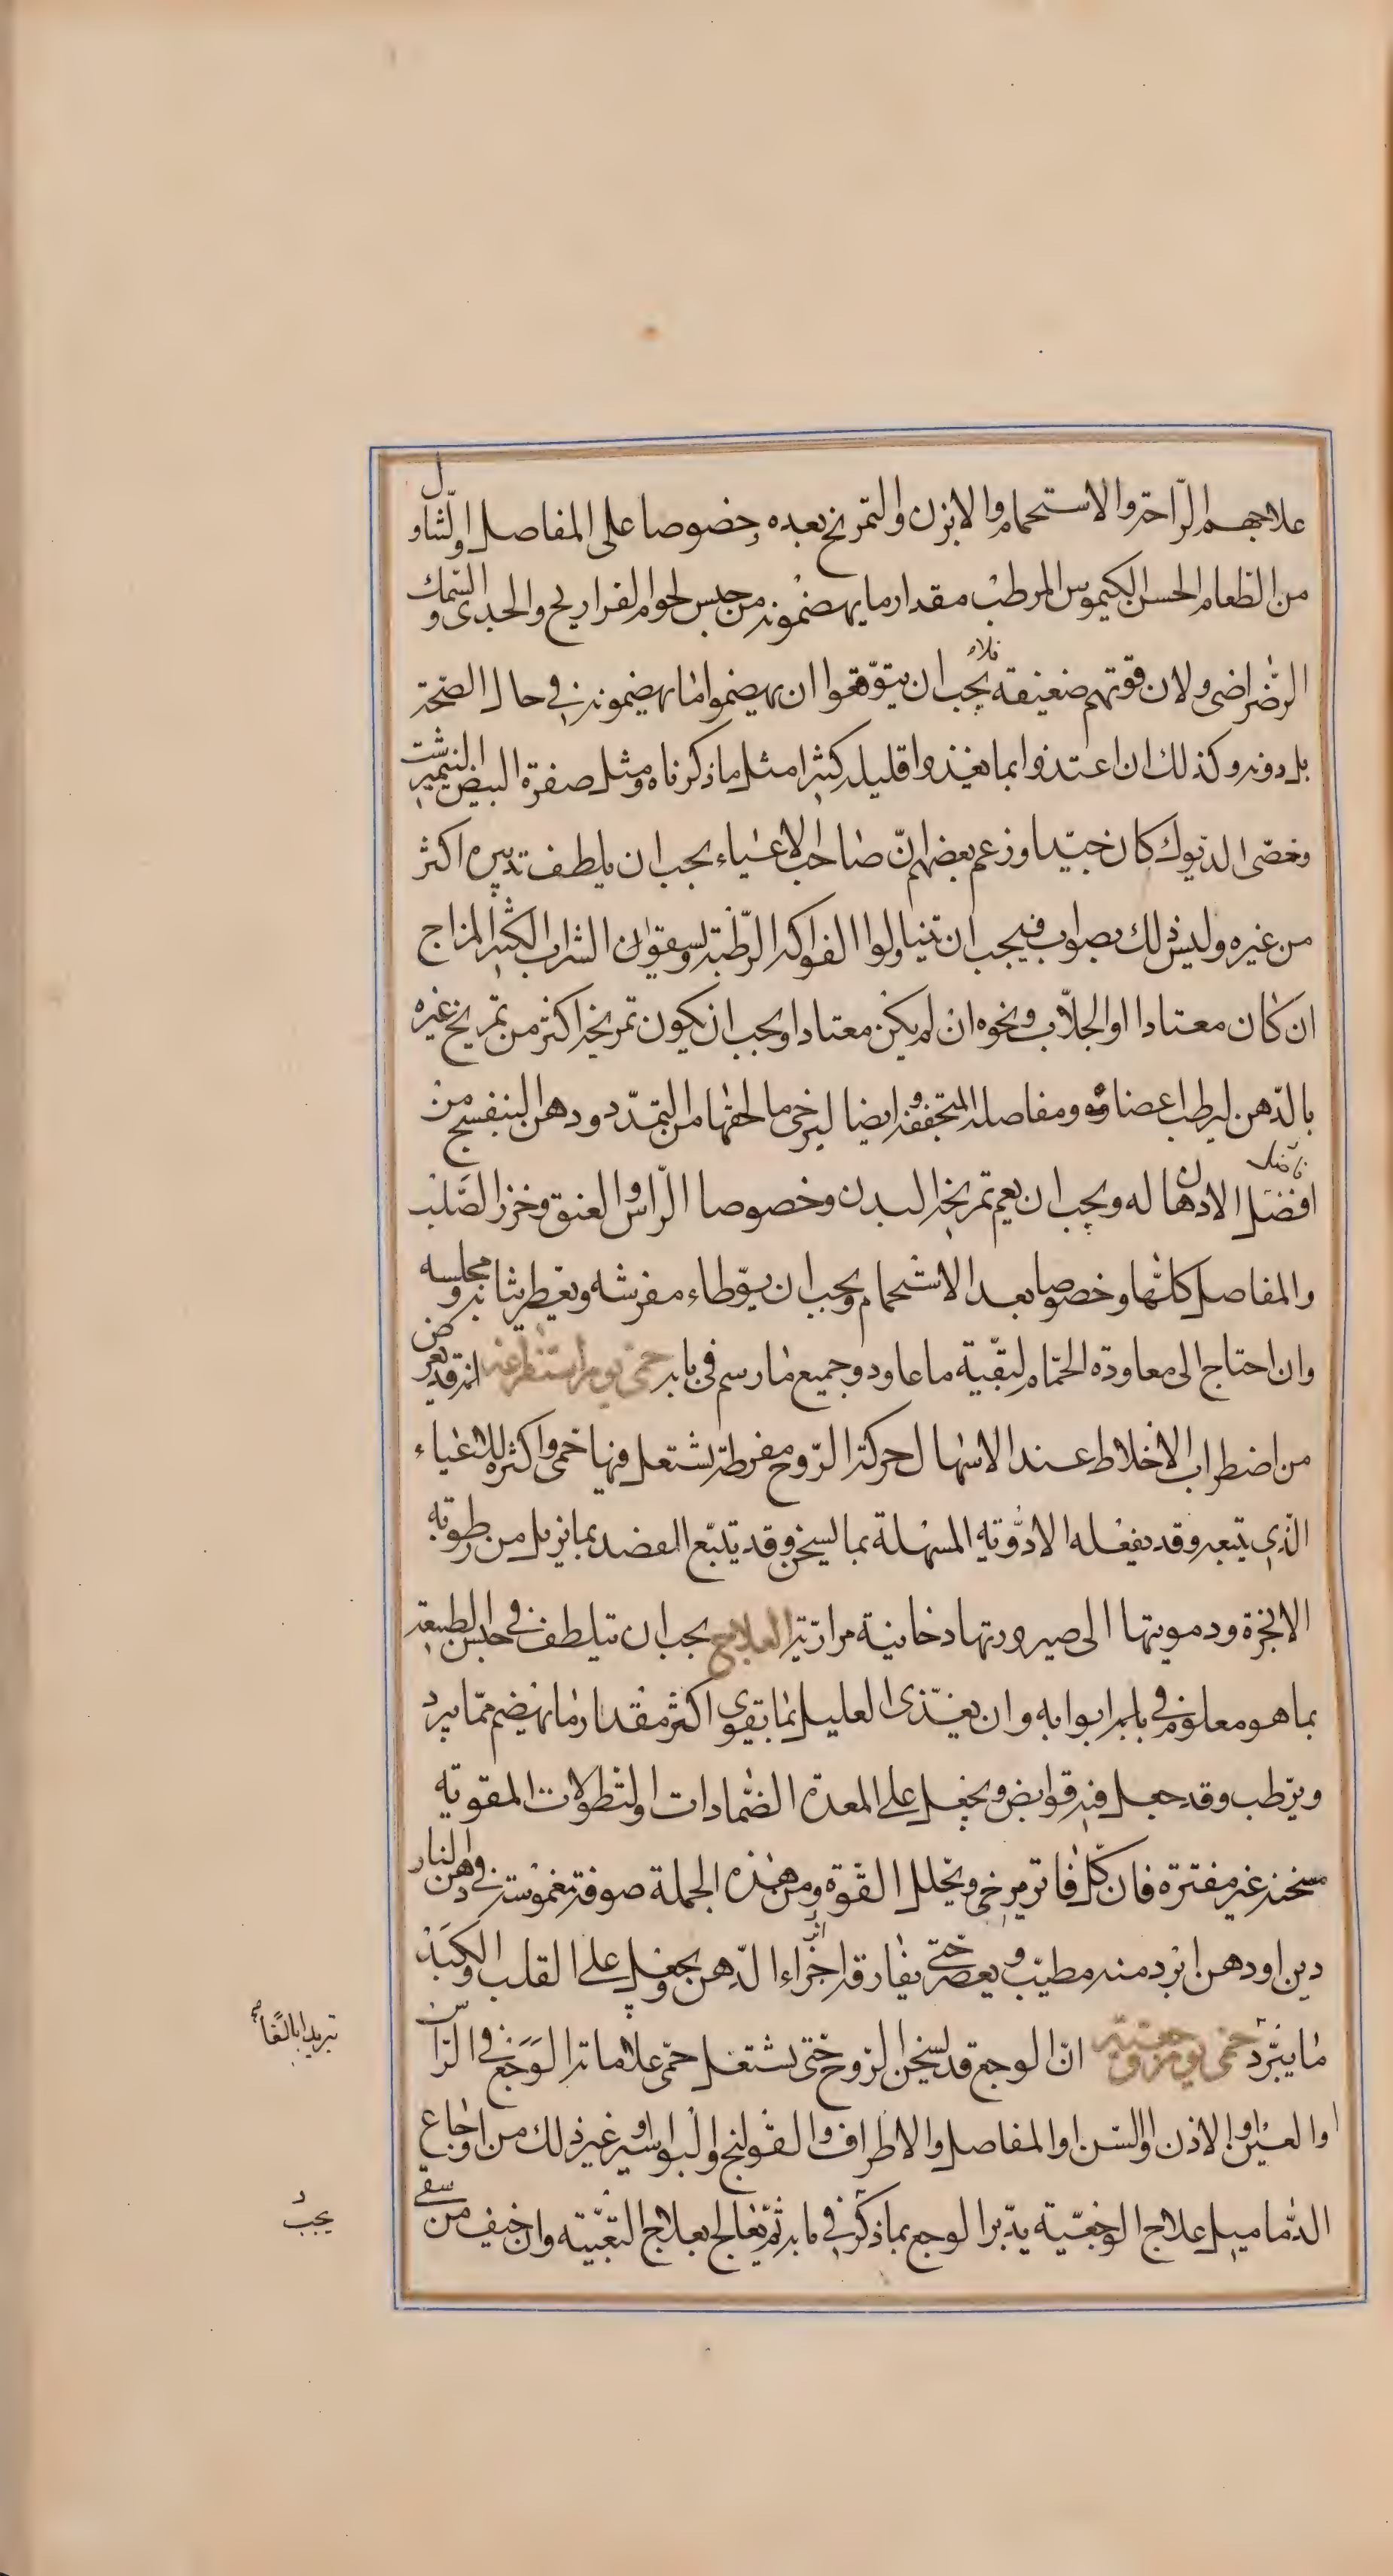 علاجهم الرّاحة والاستحمام والابزن والتمريخ بعده وخصوصا على المفاصل والتناول
من الطعام الحسن الكيموس المرطب مقدار ما يهضمونه من جنس لحوم الفراريح والجدى والسّمك
الرّضراضى ولان قوتهم ضعيفة فلا يجب ان يتوقعوا ان يهضموا ما يهضمونه فى حال الصّحة
بل دونه وكذلك ان اغتذوا بما يغذوا قليله كثيرا مثل ما ذكرناه ومثل صفرة البيض النيمبرشت
وخصى الديوك كان جيّدا وزعم بعضهم انّ صاحب الاعياء يجب ان يلطف تدبيره اكثر
من غيره وليس ذلك بصواب فيجب ان يتناولوا الفواكه الرّطبة ويسقون الشراب الكثير المزاج
ان كان معتادا او الجلّاب ونحوه ان لم يكن معتادا ويجب ان يكون تمريخه اكثر من تمريخ غيره
بالدّهن ليرطب اعضاؤه ومفاصله المتجففة وايضا ليرخى ما لحقها من التمدّد ودهن البنفسج من
افضل الادهان له ويجب ان يعم تمريخه البدن وخصوصا الرّاس والعنق وخرز الصّلب
والمفاصل كلّها وخصوصا بعد الاستحمام ويجب ان يوّطاء مفرشه ويعطر ثيابه ومجلسه
وان احتاج الى معاودة الحمّام لبقّية ما عاود وجميع ما رسم فى بابه حمى يوم استفراغية انه قد يعرض
من اضطراب الاخلاط عند الاسهال حركة الرّوح مفرطة يشتعل فيها حمى واكثره للاعياء
الّذى يتبعه وقد يفعله الادوّيه المسهلة بما يسخن وقد يتبّع الفصد بما يزيل من رطوبه
الابخرة ودمويتها الى صيرورتها دخانية مراريّة العلاج يجب ان يتلطف فى حبس الطبيعة
بما هو معلوم فى باب ابوابه وان يغذّى العليل بما يقوى اكثر مقدار ما يهضم ممّا يبرد
ويرّطب وقد جعل فيه قوابض ويجعل على المعدة الضّمادات والنطولات المقويه
مسخنة غير مفترة فان كلّ فاتر يرخى ويحلل القوّة ومن هذه الجملة صوفة مغموسة فى دهن النار
دين او دهن ابرد منه مطيّب ويعصر حتّى يفارقه اكثر اجزاء الدّهن ويجعل على القلب والكبد
ما يبرّد تبريدا بالغا حمى يوم وجعية انّ الوجع قد يسخن الرّوح حتّى يشتعل حمّى علاماته الوجع فى الرّاس
او العين او الاذن او السّن او المفاصل والاطراف والقولنج والبواسير وغير ذلك من اوجاع
الدّماميل علاج الوجعّية يدّبر الوجع بما ذكر فى بابه ثمّ يعالج بعلاج التعبّيه وان خيف من سقى
يجب